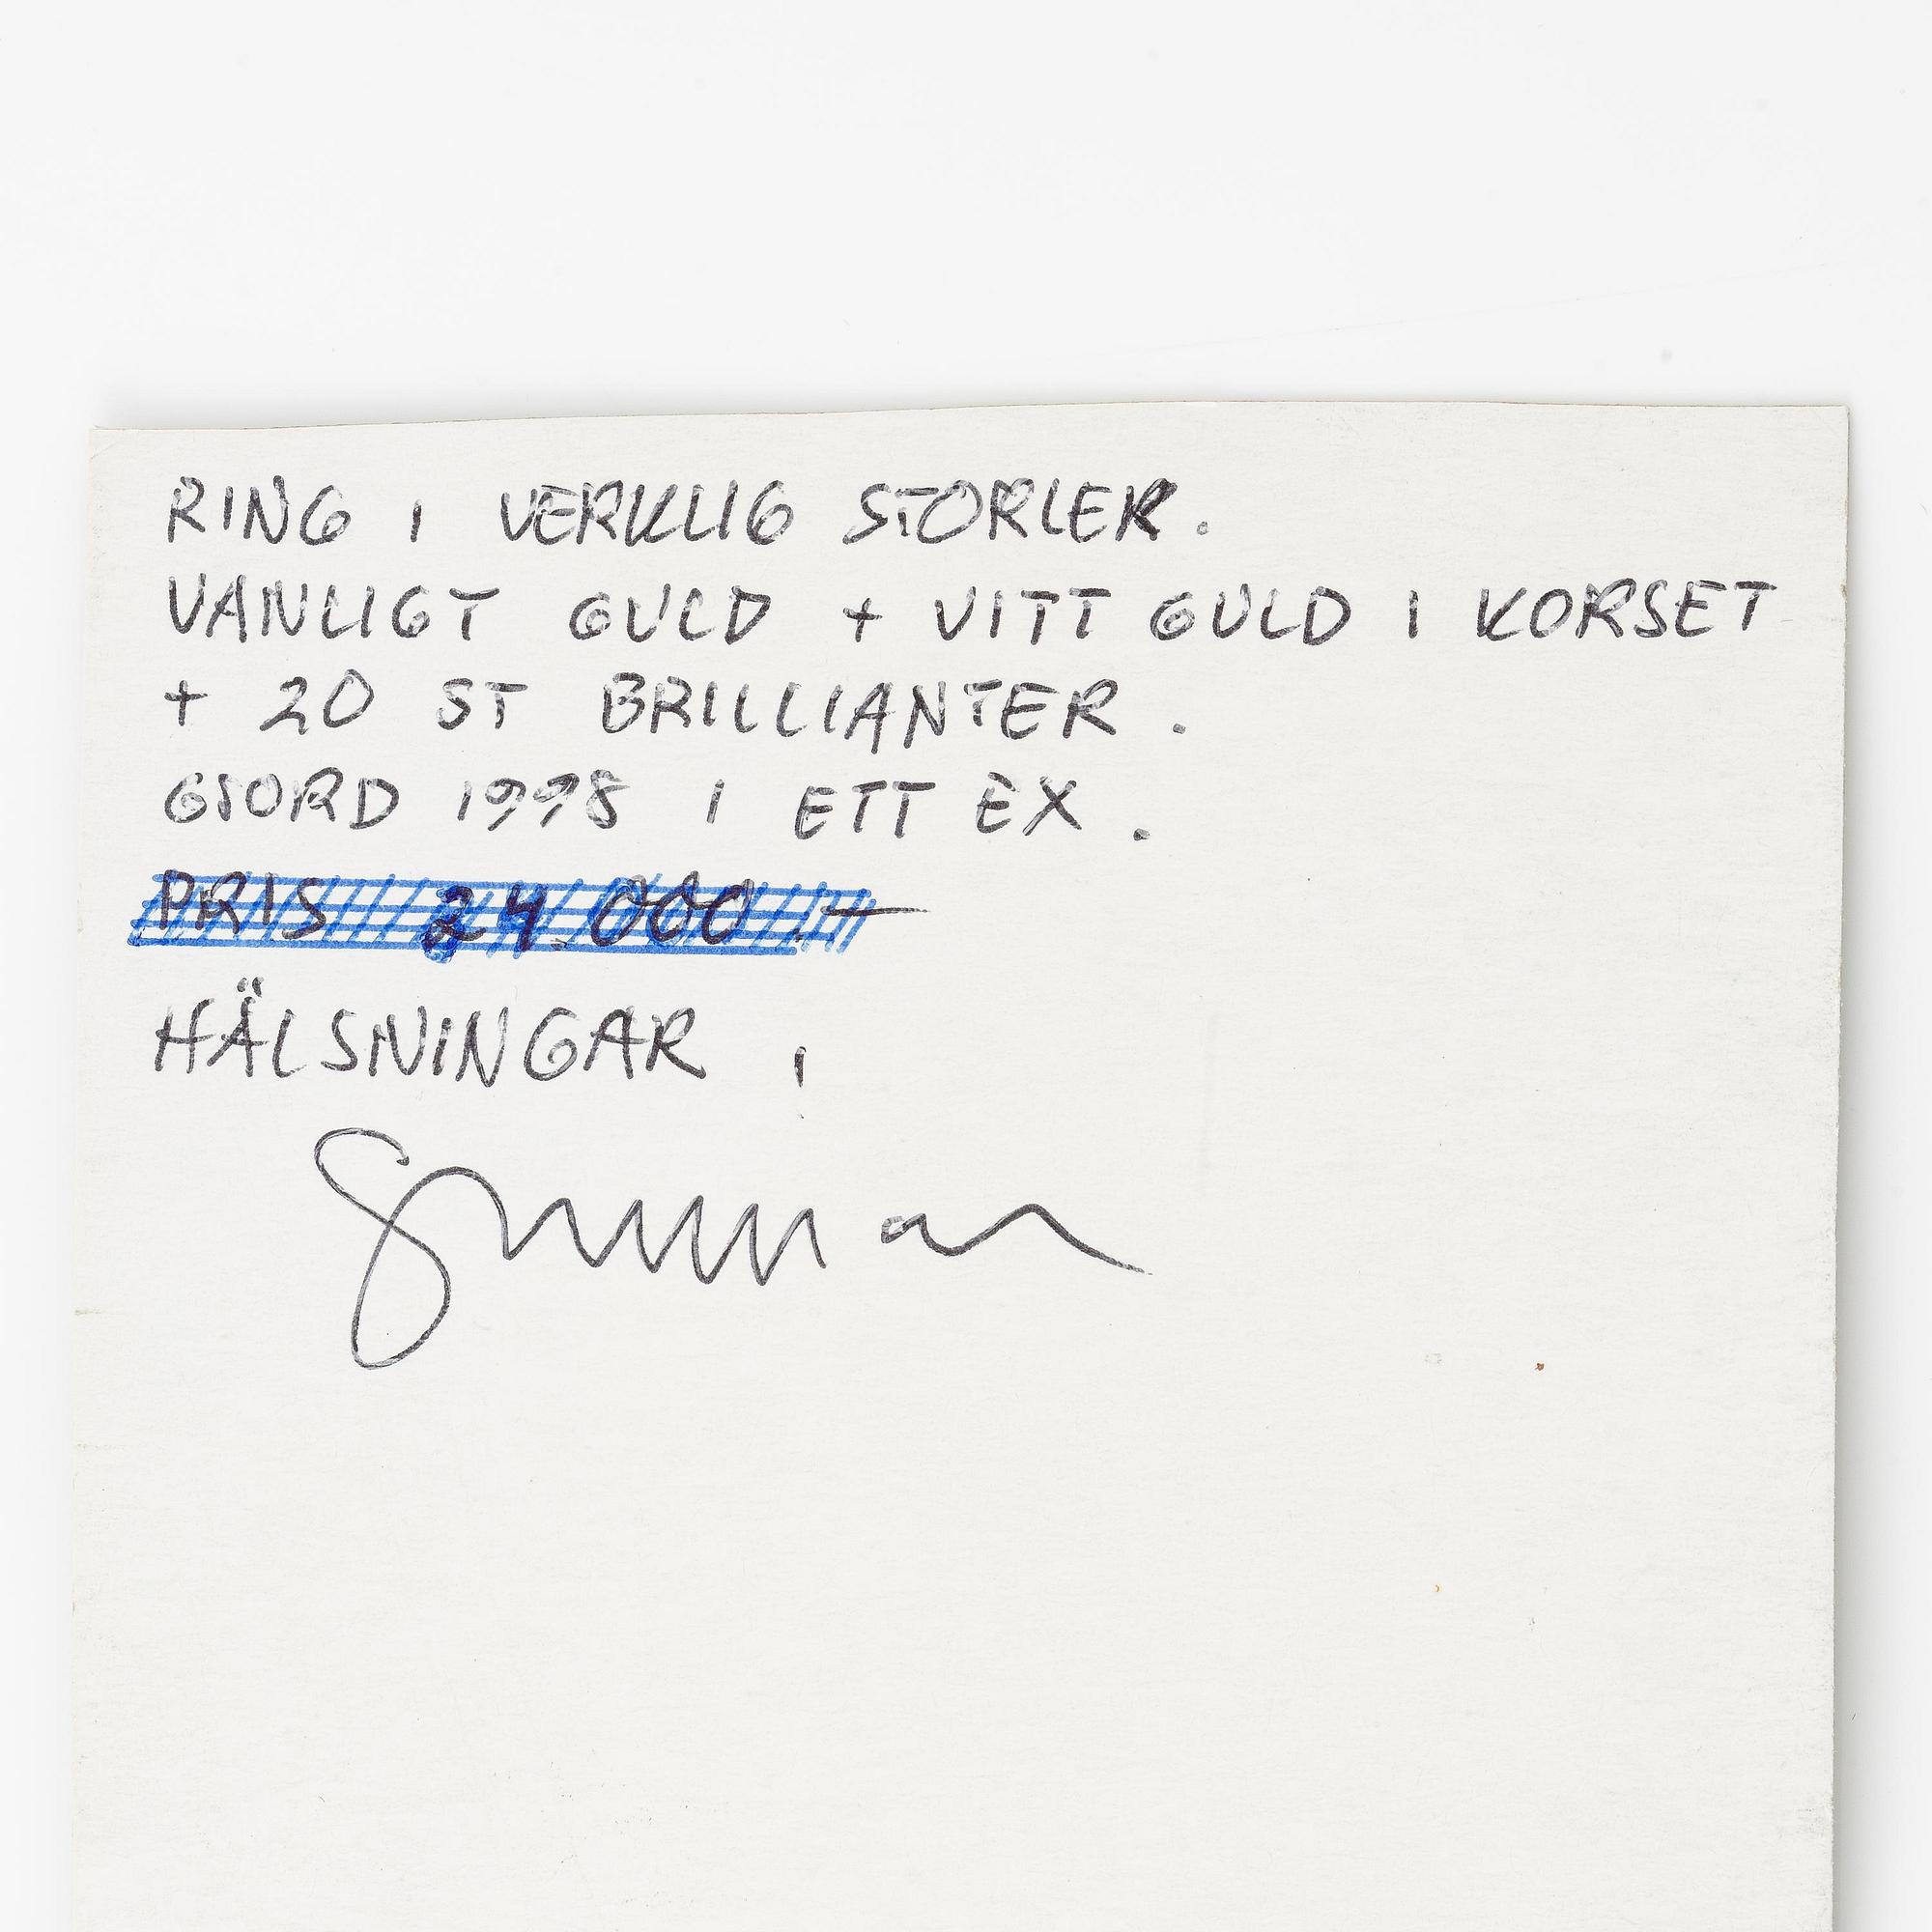 RING I VERKLIG STORLEK.
VANLIGT GULD + VITT GULD I KORSET
+ 20 ST BRILLIANTER.
GJORD 1998 I ETT EX.
PRIS 24.000.—
HÄLSNINGAR,